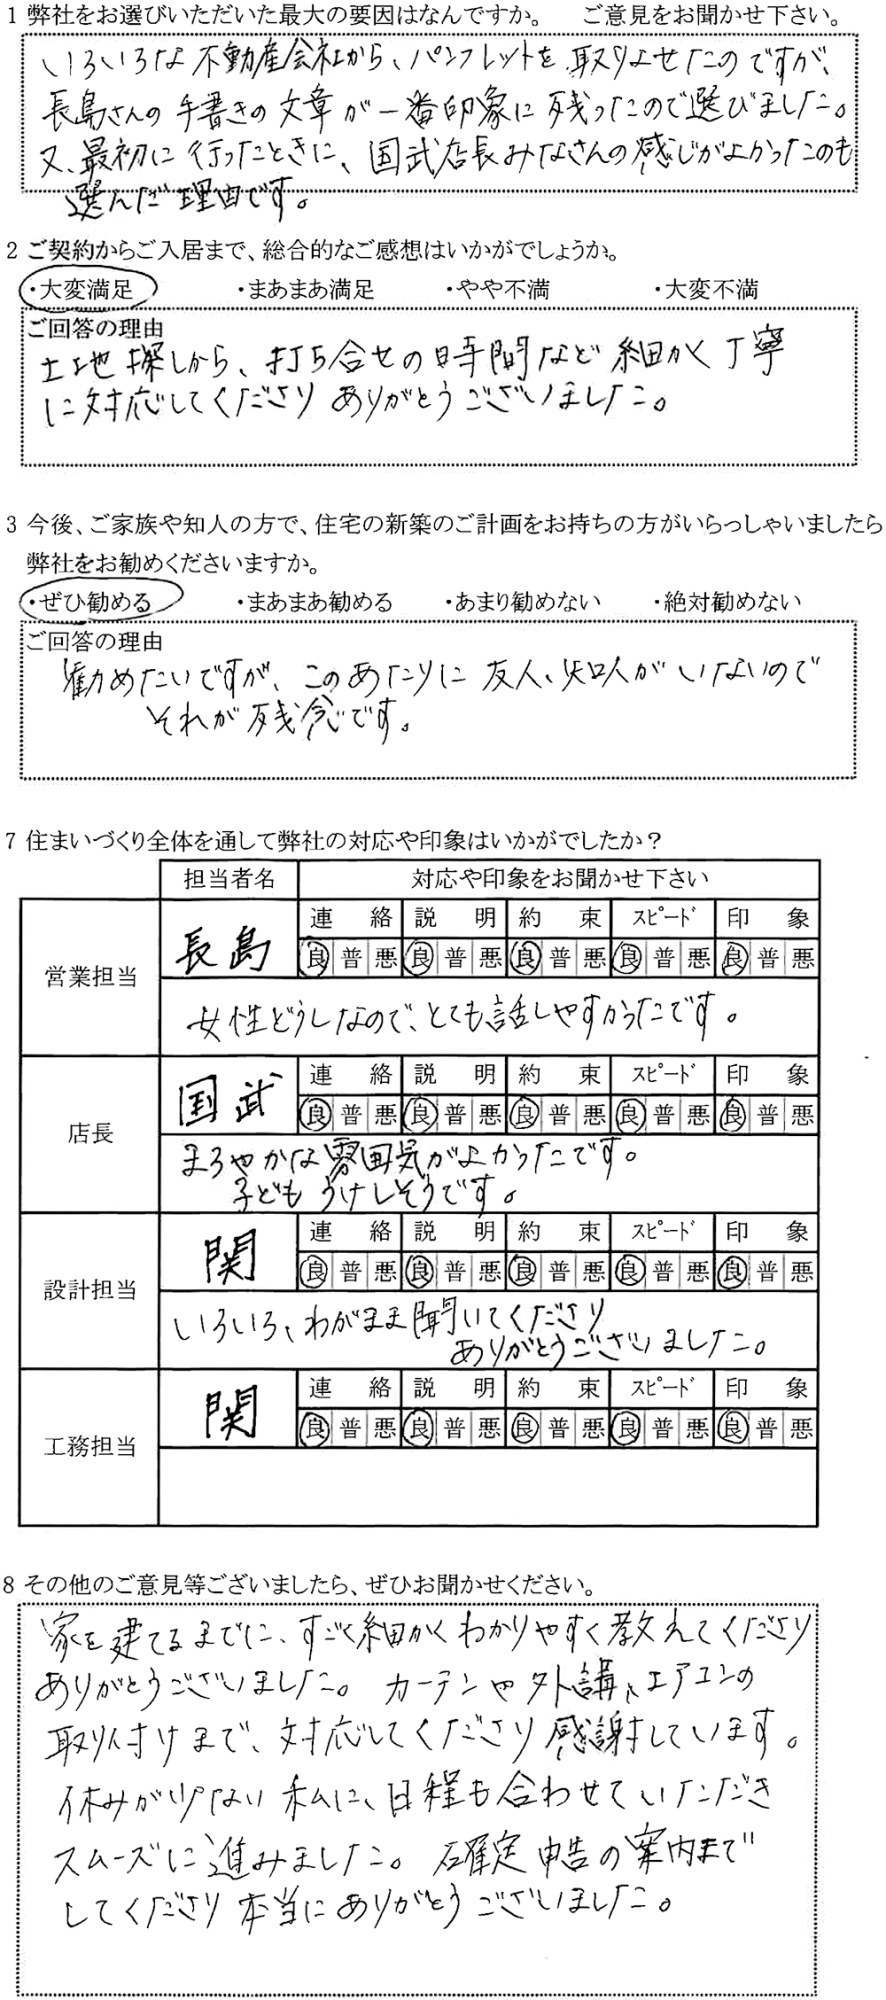 1 弊社をお選びいただいた最大の要因はなんですか。　ご意見をお聞かせ下さい。
いろいろな不動産会社から、パンフレットを取りよせたのですが、
長島さんの手書きの文章が一番印象に残ったので選びました。
又、最初に行ったときに、国武店長みなさんの感じがよかったのも
選んだ理由です。
2 ご契約からご入居まで、総合的なご感想はいかがでしょうか。
・大変満足　・まあまあ満足　・やや不満　・大変不満
ご回答の理由
土地探しから、打ち合せの時間など細かく丁寧
に対応してくださりありがとうございました。
3 今後、ご家族や知人の方で、住宅の新築のご計画をお持ちの方がいらっしゃいましたら
弊社をお勧めくださいますか。
・ぜひ勧める　・まあまあ勧める　・あまり勧めない　・絶対勧めない
ご回答の理由
勧めたいですが、このあたりに友人、知人がいないので
それが残念です。
7 住まいづくり全体を通して弊社の対応や印象はいかがでしたか？
担当者名　対応や印象をお聞かせ下さい
営業担当　長島　連絡　説明　約束　スピード　印象
良 普 悪 良 普 悪 良 普 悪 良 普 悪 良 普 悪
女性どうしなので、とても話しやすかったです。
店長　国武　連絡　説明　約束　スピード　印象
良 普 悪 良 普 悪 良 普 悪 良 普 悪 良 普 悪
まろやかな雰囲気がよかったです。
子どもうけしそうです。
設計担当　関　連絡　説明　約束　スピード　印象
良 普 悪 良 普 悪 良 普 悪 良 普 悪 良 普 悪
いろいろ、わがまま聞いてくださり
ありがとうございました。
工務担当　関　連絡　説明　約束　スピード　印象
良 普 悪 良 普 悪 良 普 悪 良 普 悪 良 普 悪
8 その他のご意見等ございましたら、ぜひお聞かせください。
家を建てるまでに、すごく細かくわかりやすく教えてくださり
ありがとうございました。カーテンや外講、エアコンの
取り付けまで、対応してくださり感謝しています。
休みが少ない私に、日程も合わせていただき
スムーズに進みました。確定申告の案内まで
してくださり本当にありがとうございました。